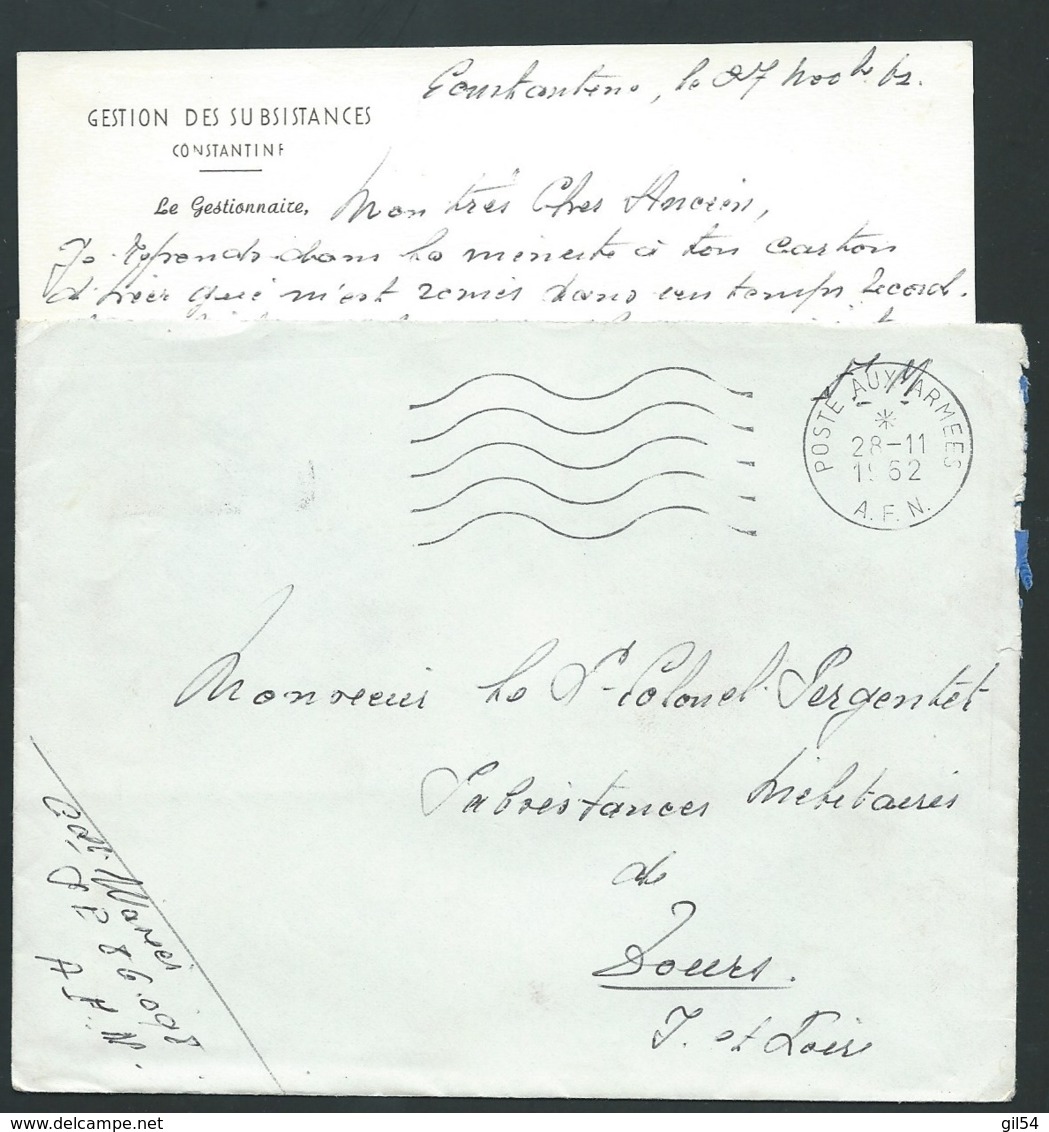 Constantine, le 27 Novbre 62.
GESTION DES SUBSISTANCES
CONSTANTINE
Le Gestionnaire,
Mon très Cher Ancien,
Je réponds dans la minute à ton carton
d'hier qui m'est remis dans un temps record.
F M
POSTE AUX ARMEES
28-11
1962
A.F.N.
Monsieur le Lt Colonel Sergentet
Subsistances Militaires
de
Tours.
I. et Loire
Cdt
86.098
A.F.N.
gil54